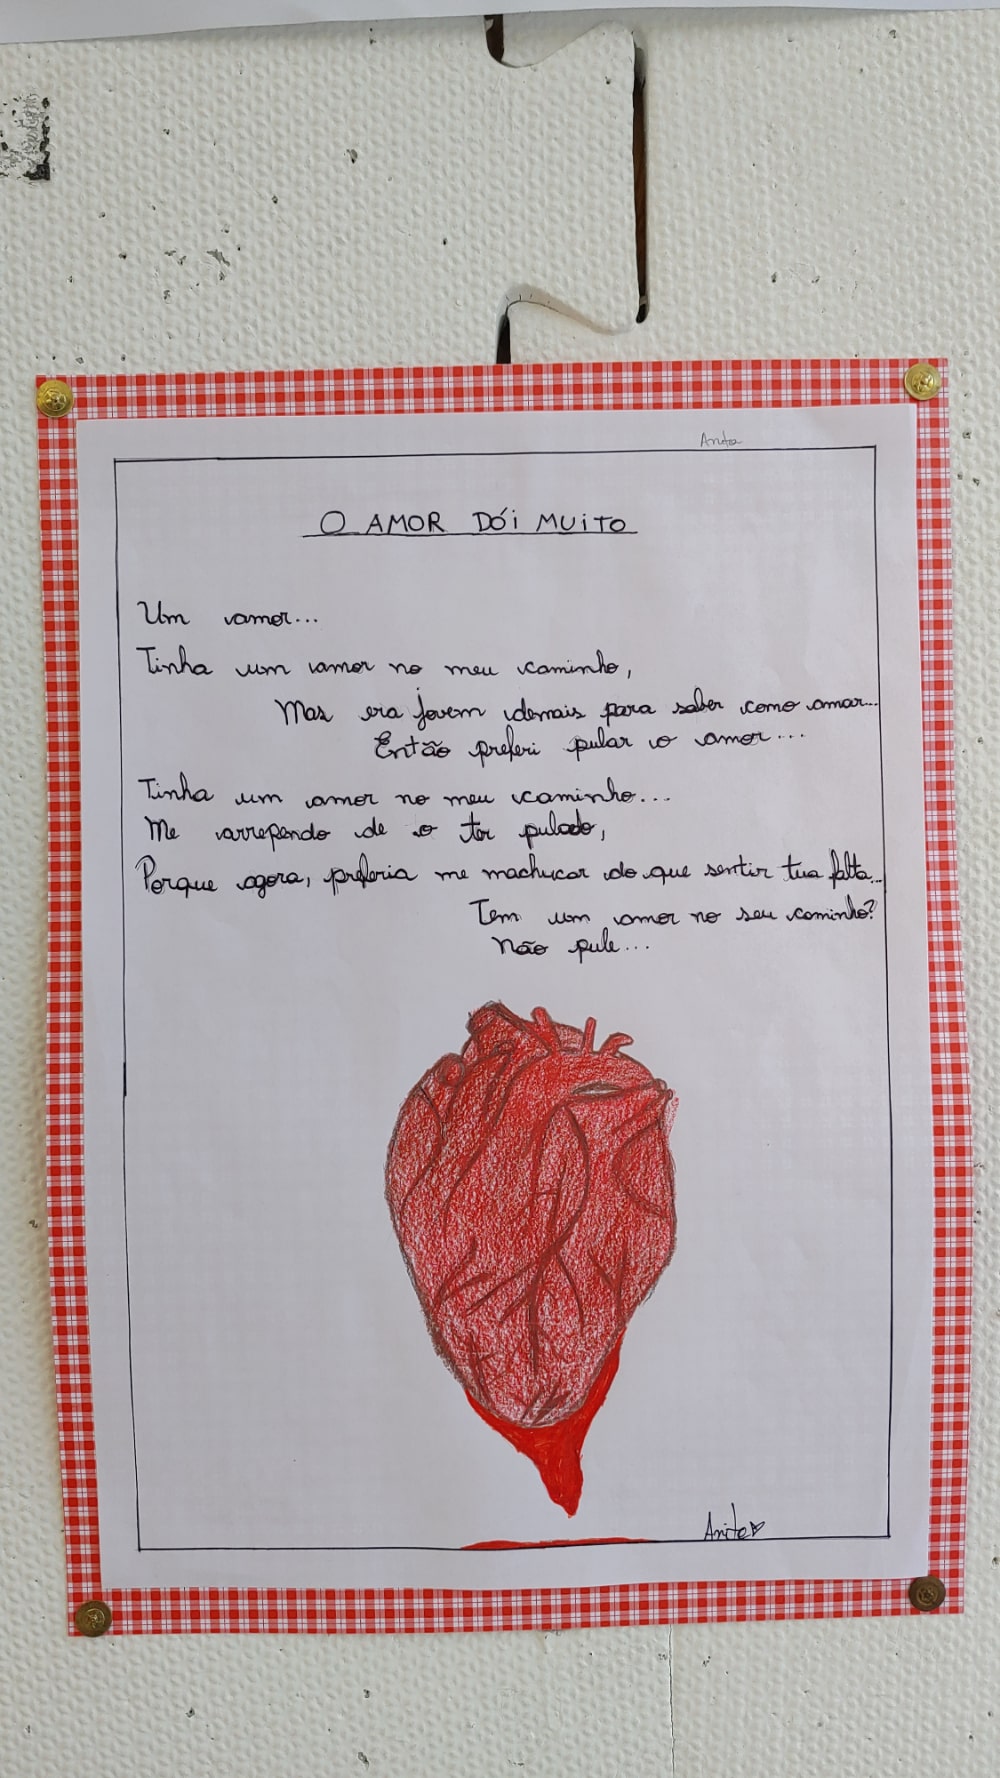 Anita
O AMOR DÓI MUITO
Um amor...
Tinha um amor no meu caminho,
Mas era jovem demais para saber como amar...
Então preferi pular o amor...
Tinha um amor no meu caminho...
Me arrependo de o ter pulado,
Porque agora, preferia me machucar do que sentir tua falta...
Tem um amor no seu caminho?
Não pule...
Anita